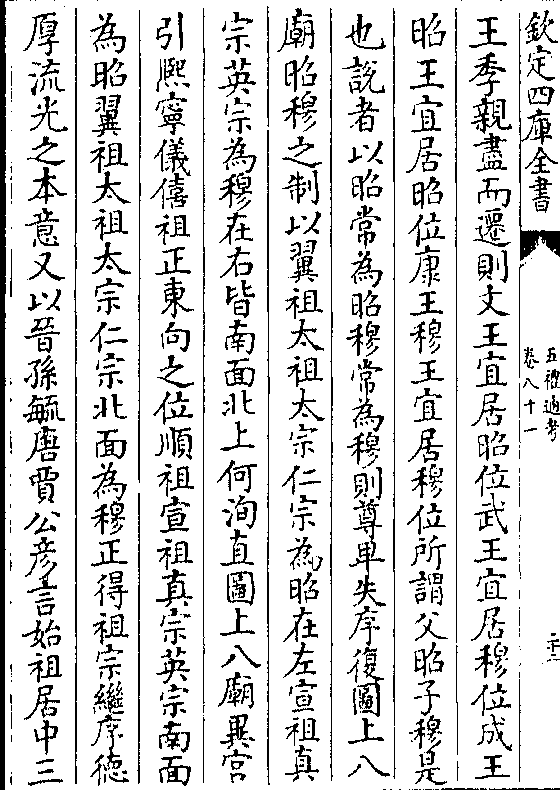 欽定四庫全書
五禮通考
卷八十一
二十三
王季親盡而遷則文王宜居昭位武王宜居穆位成王
昭王宜居昭位康王穆王宜居穆位所謂父昭子穆是
也說者以昭常為昭穆常為穆則尊卑失序復圖上八
廟昭穆之制以翼祖太祖太宗仁宗為昭在左宣祖真
宗英宗為穆在右皆南面北上何洵直圖上八廟異宮
引熈寧儀僖祖正東向之位順祖宣祖真宗英宗南面
為昭翼祖太祖太宗仁宗北面為穆正得祖宗繼序德
厚流光之本意又以晉孫毓唐賈公彥言始祖居中三